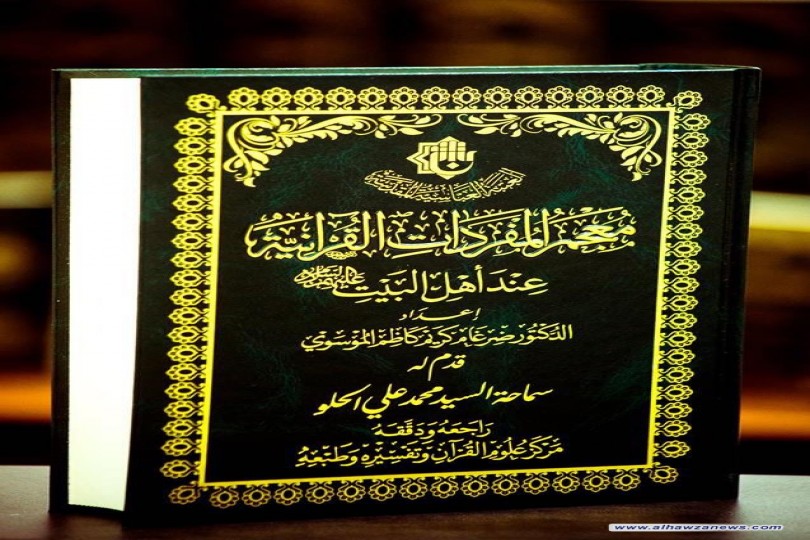 العتبة العباسية المقدسة
معجم المفردات القرآنية
عند أهل البيت عليهم السلام
إعداد
الدكتور ضرغام كريم كاظم الموسوي
قدم له
سماحة السيد محمد علي الحلو
راجعه ودققه
مركز علوم القرآن وتفسيره وطبعه
www.alhawzanews.com